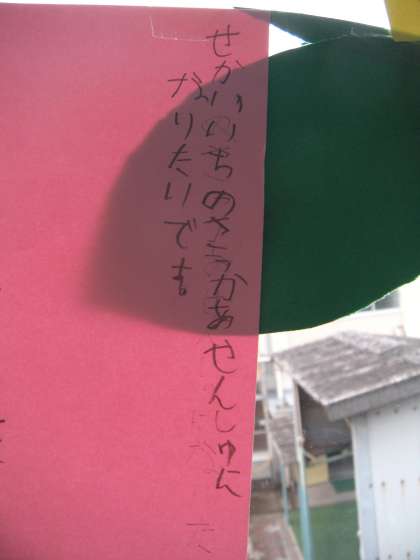 せかいいちのさっかあせんしゅに
なりたいでも